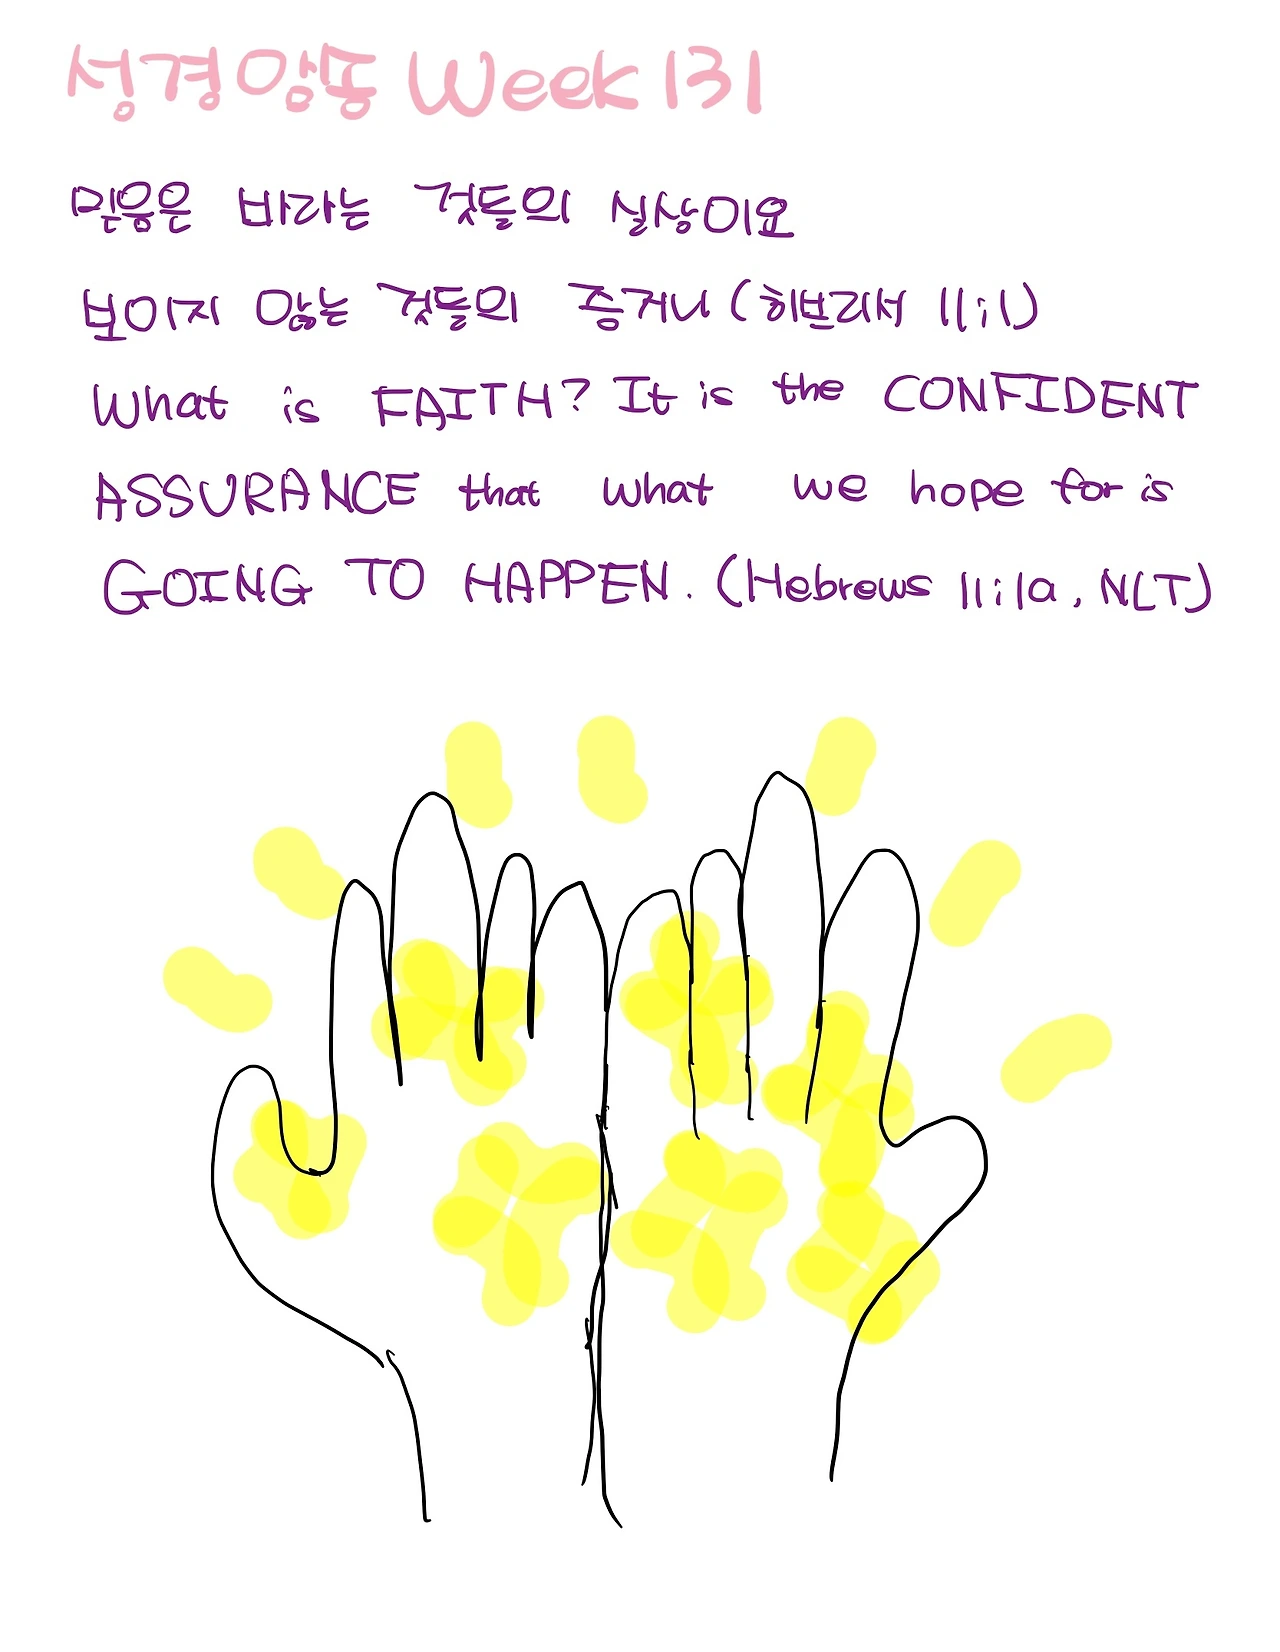 성경암송 Week 131
믿음은 바라는 것들의 실상이요
보이지 않는 것들의 증거니 (히브리서 11:1)
What is FAITH? It is the CONFIDENT
ASSURANCE that what we hope for is
GOING TO HAPPEN. (Hebrews 11:1a, NLT)